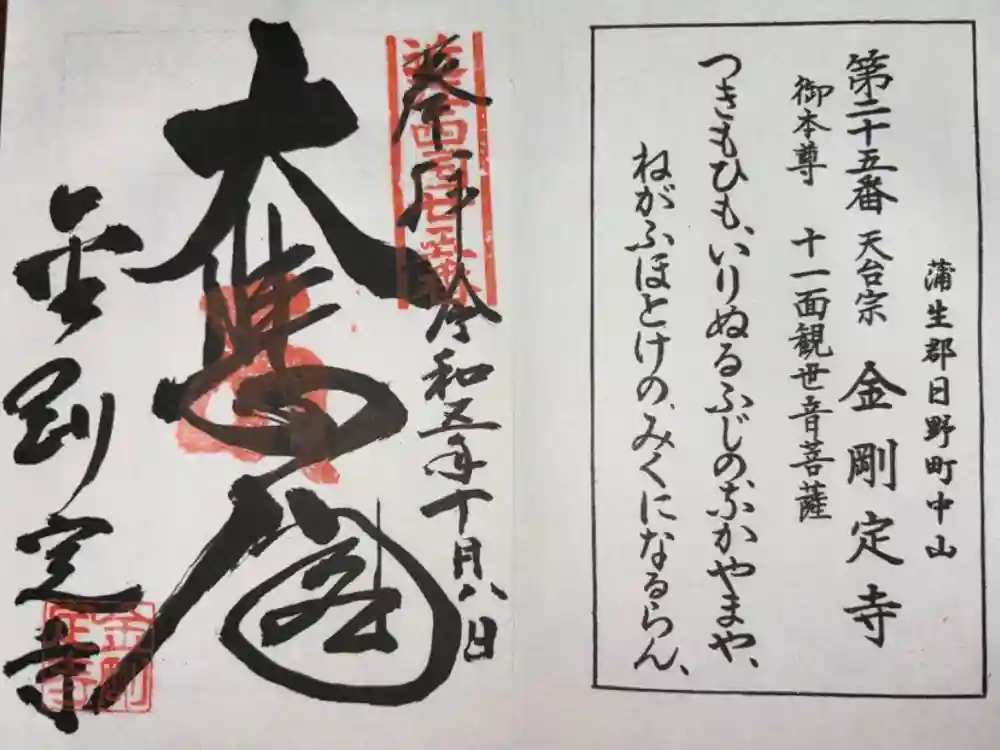 蒲生郡日野町中山
第二十五番 天台宗 金剛定寺
御本尊 十一面観世音菩薩
つきもひも、いりぬるふじのなかやまや、
ねがふほとけの、みくになるらん、
奉拝 令和五年十月八日
大悲閣
金剛定寺
金剛
定寺